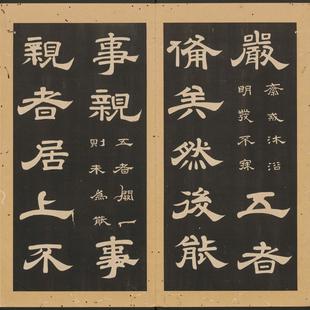 嚴
齋戒沐浴
明發不寐
五者
備矣然後能
事親
五者闕一
則未為能
事
親者居上不